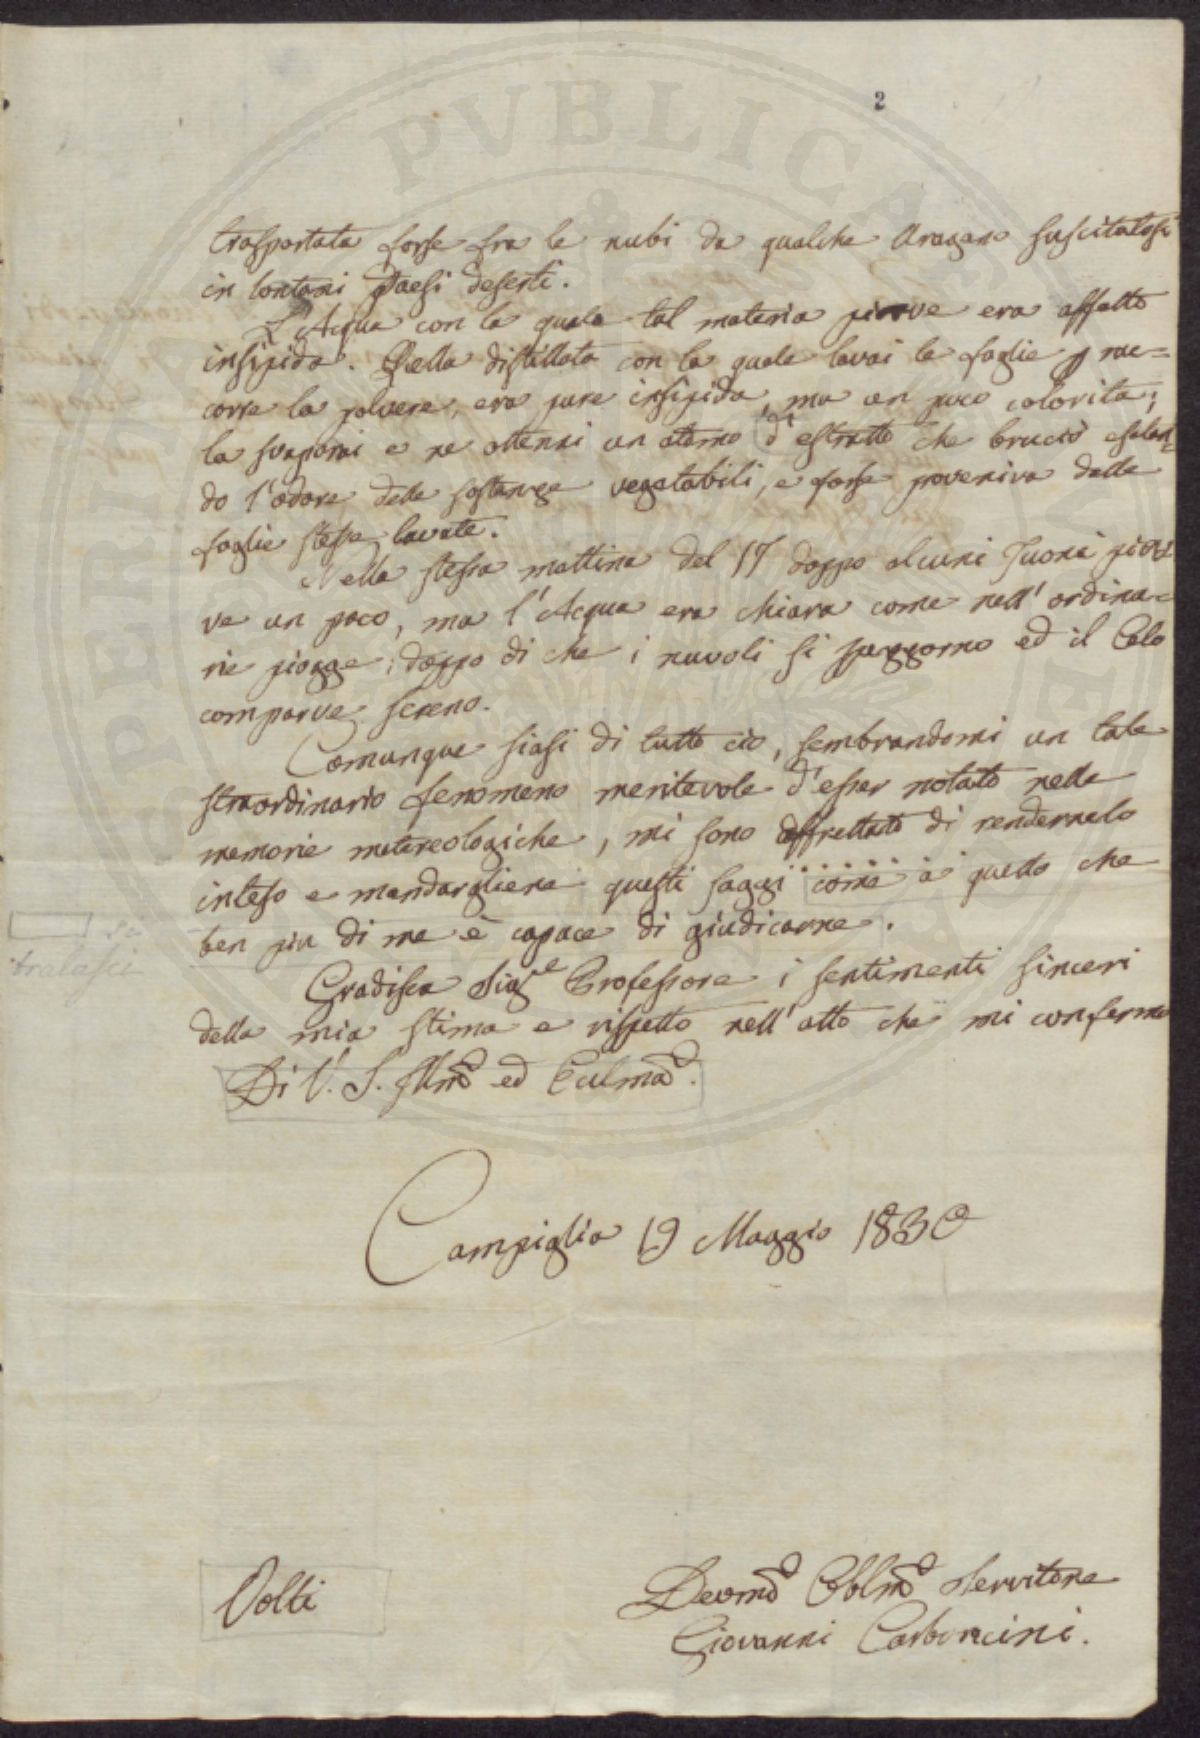 2
trasportata forse fra le nubi da qualche Uragano suscitatosi
in lontani Paesi deserti.
L'Acqua con la quale tal materia piovve era affatto
insipida. Quella distillata con la quale lavai le foglie p rac=
corre la polvere, era pure insipida, ma un poco colorita;
la svaporai e ne ottenni un atomo di estratto che bruciò esalan=
do l'odore delle sostanze vegetabili, e forse proveniva dalle
foglie stesse lavate.
Nella stessa mattina del 17 doppo alcuni Tuoni piov=
ve un poco, ma l'Acqua era chiara come nell'ordina=
rie piogge; doppo di che i nuvoli si ed il Celo
comparve sereno.
Comunque siasi di tutto ciò, sembrandomi un tale
straordinario fenomeno meritevole d'esser notato nelle
memorie metereologiche, mi sono affrettato di rendernelo
inteso e mandargliene questi saggi come a quello che
ben piu di me è capace di giudicarne.
si
tralasci
Gradisca Sigre Professore i sentimenti sinceri
della mia stima e rispetto nell'atto che mi confermo
Di V. S. Illma ed Eculma.
Campiglia 19 Maggio 1830
Devmo Obblmo Servitore
Giovanni Carboncini.
Volti
PERITATI PVBLICAE